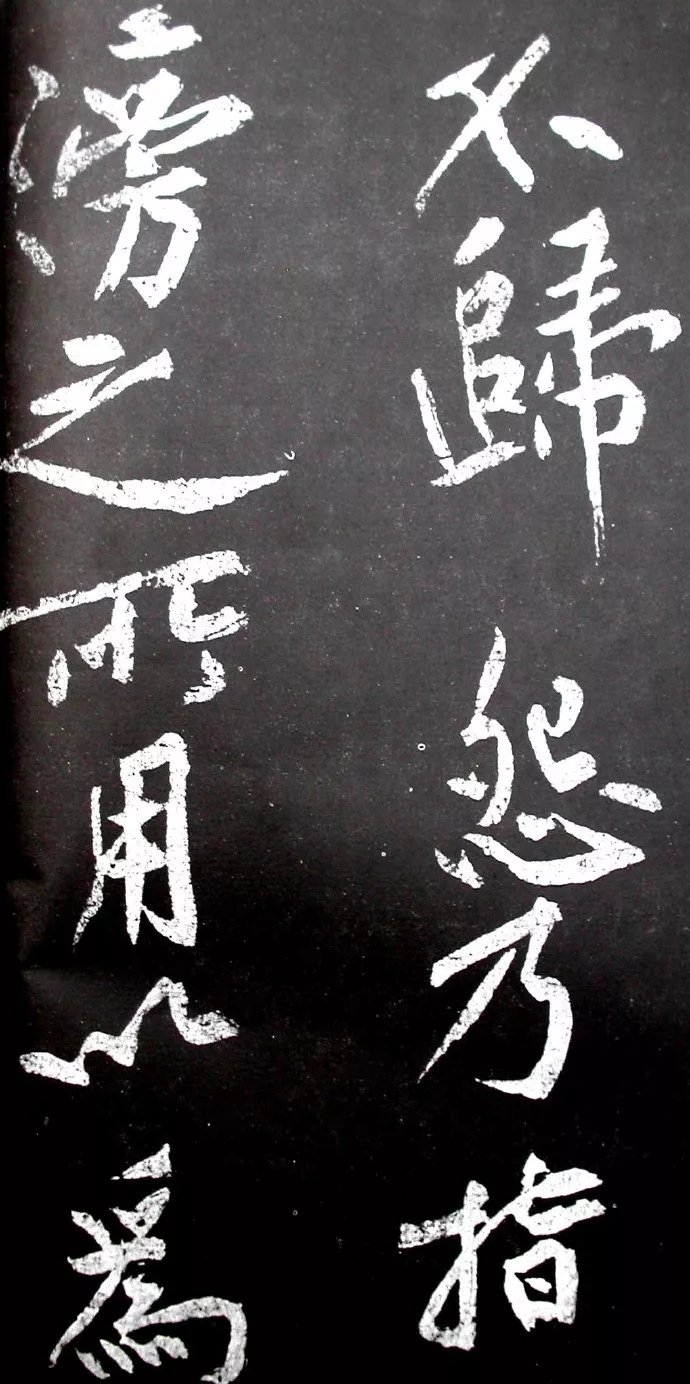 不歸怨乃指
滂之所用以爲